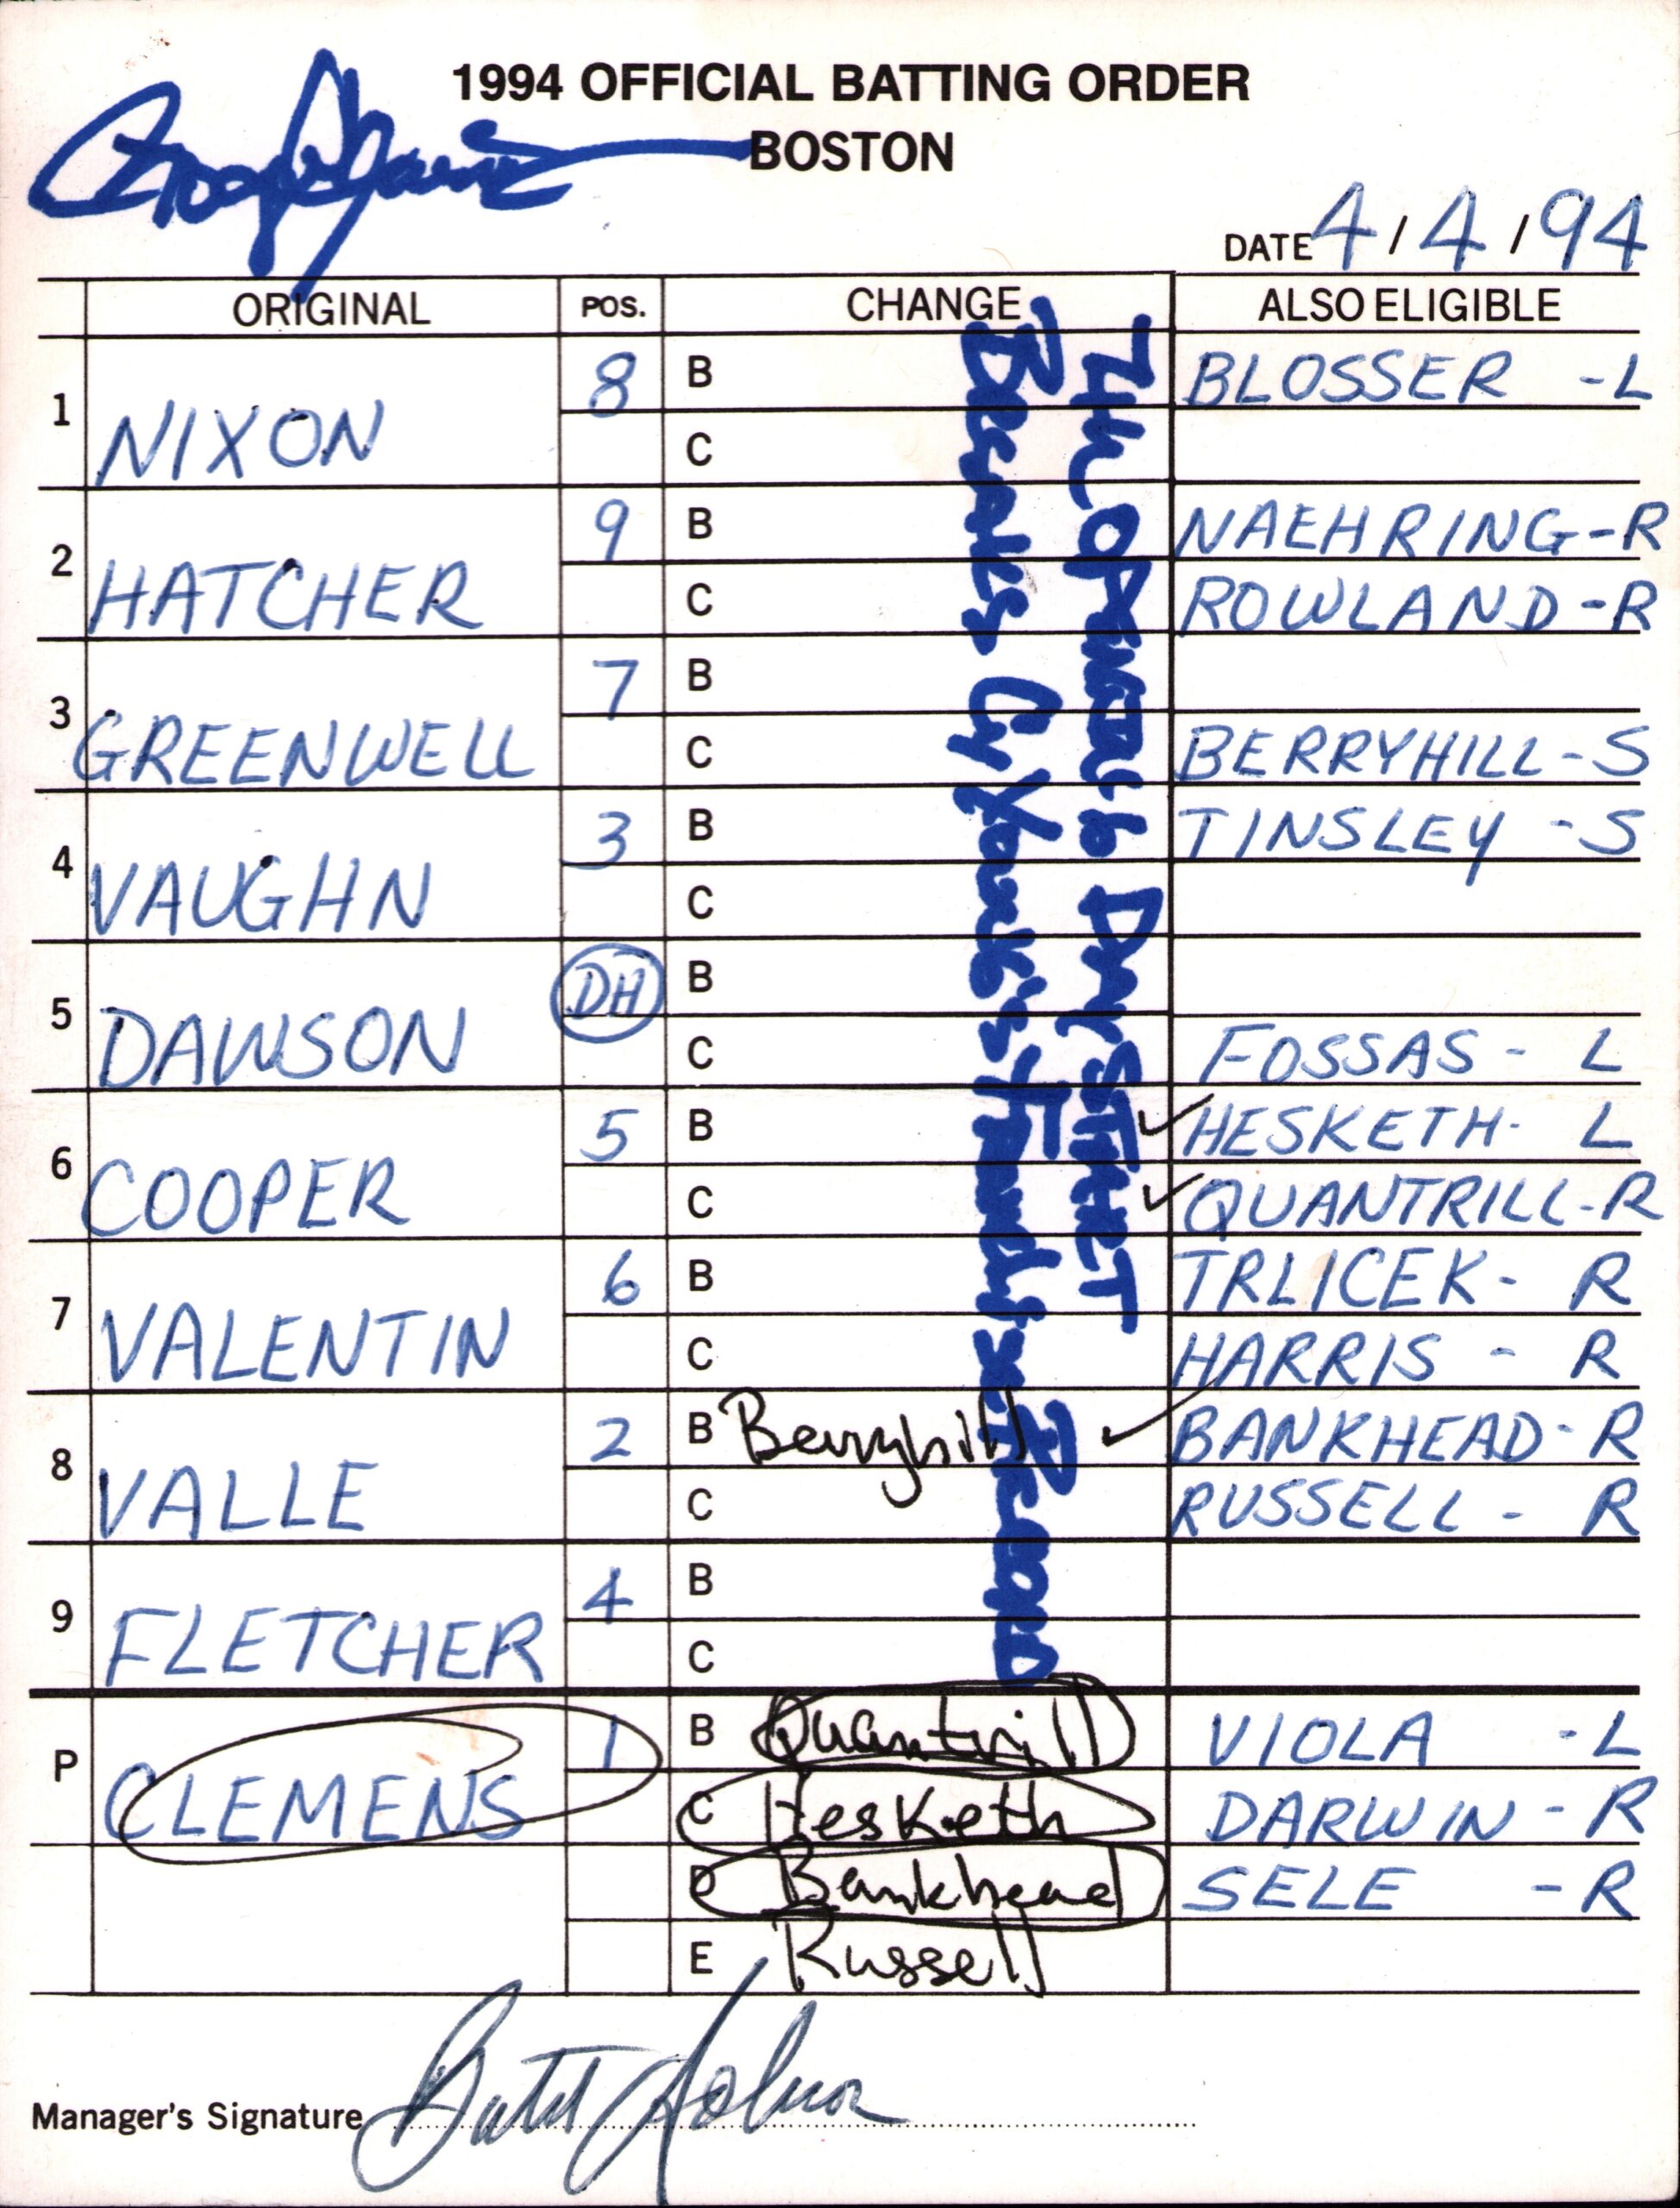 1994 OFFICIAL BATTING ORDER
BOSTON
DATE 4/4/94
ORIGINAL POS. CHANGE ALSO ELIGIBLE
1 NIXON 8 B BLOSSER - L
C
2 HATCHER 9 B NAEHRING - R
C ROWLAND - R
3 GREENWELL 7 B
C BERRYHILL - S
4 VAUGHN 3 B TINSLEY - S
C
5 DAWSON DH B
C FOSSAS - L
6 COOPER 5 B ✓ HESKETH - L
C ✓ QUANTRILL - R
7 VALENTIN 6 B TRLICEK - R
C HARRIS - R
8 VALLE 2 B Berryhill ✓ BANKHEAD - R
C RUSSELL - R
9 FLETCHER 4 B
C
P CLEMENS 1 B Quantrill VIOLA - L
C Hesketh DARWIN - R
D Bankhead SELE - R
E Russell
7th Opening Day START
Breaks Cy Young's Franchise Record
Manager's Signature